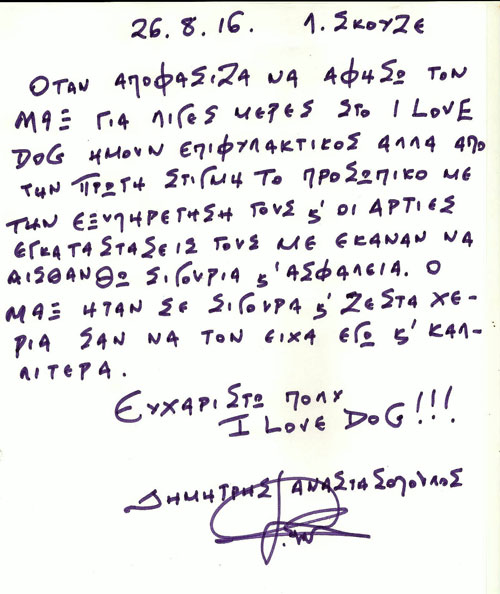 26.8.16. Λ. ΣΚΟΥΖΕ
ΟΤΑΝ ΑΠΟΦΑΣΙΖΑ ΝΑ ΑΦΗΣΩ ΤΟΝ
ΜΑΞ ΓΙΑ ΛΙΓΕΣ ΜΕΡΕΣ ΣΤΟ I LOVE
DOG ΗΜΟΥΝ ΕΠΙΦΥΛΑΚΤΙΚΟΣ ΑΛΛΑ ΑΠΟ
ΤΗΝ ΠΡΩΤΗ ΣΤΙΓΜΗ ΤΟ ΠΡΟΣΩΠΙΚΟ ΜΕ
ΤΗΝ ΕΞΥΠΗΡΕΤΗΣΗ ΤΟΥΣ ϗ' ΟΙ ΑΡΤΙΕΣ
ΕΓΚΑΤΑΣΤΑΣΕΙΣ ΤΟΥΣ ΜΕ ΕΚΑΝΑΝ ΝΑ
ΑΙΣΘΑΝΘΩ ΣΙΓΟΥΡΙΑ ϗ' ΑΣΦΑΛΕΙΑ. Ο
ΜΑΞ ΗΤΑΝ ΣΕ ΣΙΓΟΥΡΑ ϗ' ΖΕΣΤΑ ΧΕ-
ΡΙΑ ΣΑΝ ΝΑ ΤΟΝ ΕΙΧΑ ΕΓΩ ϗ' ΚΑΛ-
ΛΙΤΕΡΑ.
ΕΥΧΑΡΙΣΤΩ ΠΟΛΥ
I LOVE DOG!!!
ΔΗΜΗΤΡΗΣ ΑΝΑΣΤΑΣΟΠΟΥΛΟΣ